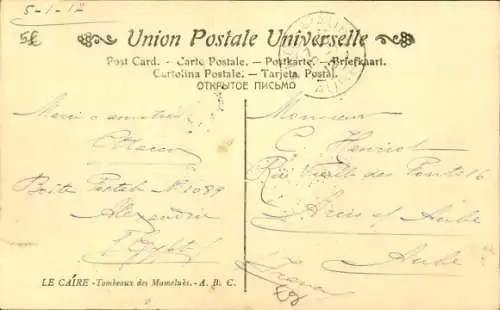 5-1-12
5£
Union Postale Universelle
Post Card. - Carte Postale. - Postkarte. - Briefkaart.
Cartolina Postale. - Tarjeta Postal.
ОТКРЫТОЕ ПИСЬМО
Merci
Boite Postale No 1089
Alexandrie
Egypte
Monsieur
C. Henriot
Rue Vieille des Ponts 16
Arcis s/ Aube
Aube
France
LE CAIRE - Tombeaux des Mameluks. - A. B. C.